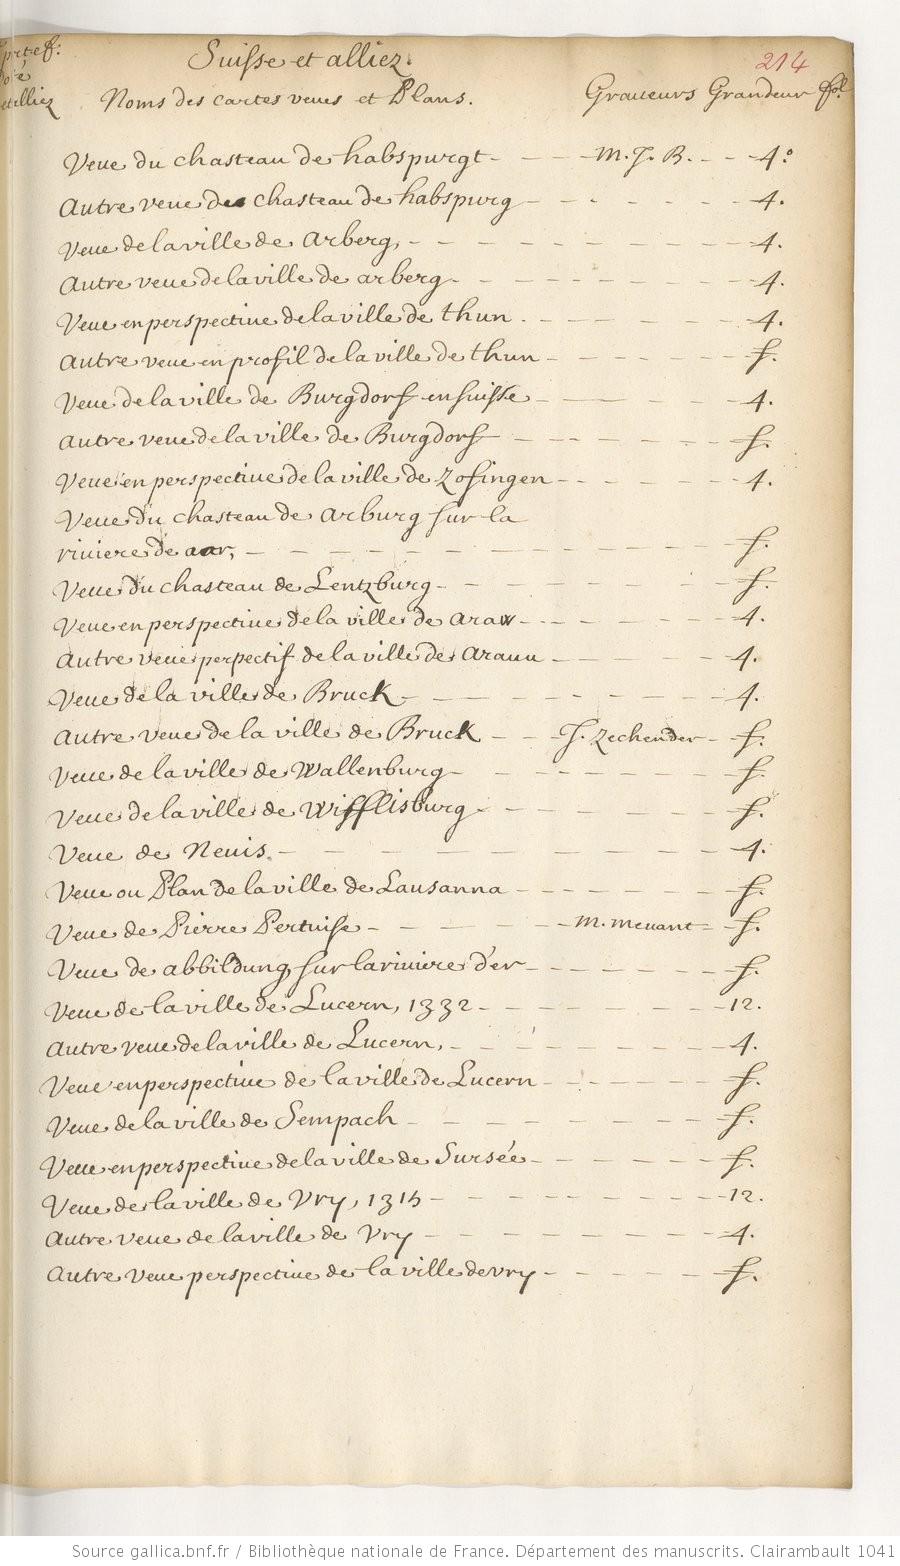 Suisse et alliez.
214
Noms des cartes veues et Plans. Graueurs Grandeur fol.
Veue du chasteau de habspurgt - - - M. J. B. - - - 4.°
Autre veue de chasteau de habspurg - - - - - - 4.
Veue de la ville de Arberg, - - - - - - - - 4.
Autre veue de la ville de arberg - - - - - - - 4.
Veue en perspectiue de la ville de thun - - - - - - 4.
Autre veue en profil de la ville de thun - - - - - - f.
Veue de la ville de Burgdorf en suisse - - - - - 4.
Autre veue de la ville de Burgdorf - - - - - - f.
Veue en perspectiue de la ville de Zofingen - - - - - - 4.
Veue du chasteau de Arburg sur la
riuiere de aar, - - - - - - - - - - - f.
Veue du chasteau de Lentzburg - - - - - - - - f.
Veue en perspectiue de la ville de Araw - - - - - - 4.
Autre veue perpectif de la ville de Arauu - - - - - 4.
Veue de la ville de Bruck - - - - - - - - 4.
Autre veue de la ville de Bruck - - J. Zechender - f.
Veue de la ville de Wallenburg - - - - - - - f.
Veue de la ville de Wifflisburg - - - - - - - f.
Veue de Neuis. - - - - - - - - - - 4.
Veue ou Plan de la ville de Lausanna - - - - - - f.
Veue de Pierre Pertuise - - - - - - M. Meuant - f.
Veue de abbildung, sur la riuiere d'er - - - - - - f.
Veue de la ville de Lucern, 1332 - - - - - - - 12.
Autre veue de la ville de Lucern, - - - - - - - 4.
Veue en perspectiue de la ville de Lucern - - - - - f.
Veue de la ville de Sempach - - - - - - - - f.
Veue en perspectiue de la ville de Sursée - - - - - - f.
Veue de la ville de Vry, 1315 - - - - - - - - 12.
Autre veue de la ville de Vry - - - - - - - - 4.
Autre Veue perspectiue de la ville de Vry - - - - - f.
Source gallica.bnf.fr / Bibliothèque nationale de France. Département des manuscrits. Clairambault 1041